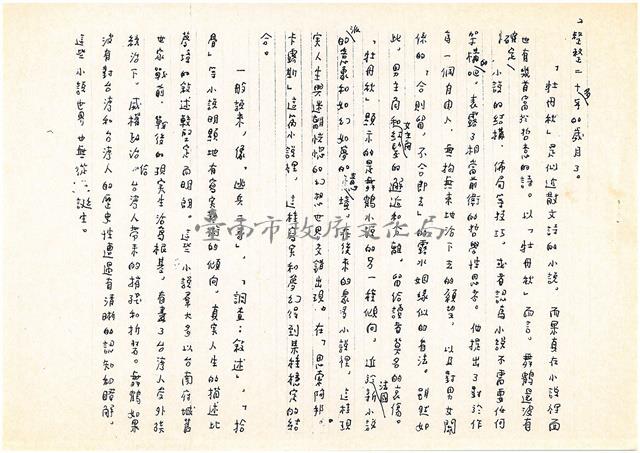 整整二十多年的歲月了。
「牡丹秋」是似近散文詩的小說，而果真在小說裡面
也有幾首富於哲意的詩。以「牡丹秋」而言，舞鶴還沒有
確定小說的結構、佈局等技巧，或者認為小說不需要任何
架構吧。表露了相當前衛的哲學性思考。他提出了對於作
為一個自由人，無拘無束地活下去的願望，以及對男女關
係的「合則留，不合即去」的露水姻緣似的看法。雖然如
此，男主角和女主角的邂逅和離，留給讀者莫名的哀傷。
「牡丹秋」顯示的是舞鶴小說的另一種傾向，近於法國新小說
派的意象和如幻如夢的意境，在後來的舞鶴小說裡，這種現
實人生與迷離恍惚的幻想世界交錯出現。在「思索阿邦．
卡露斯」這篇小說裡，這種真實和夢幻得到某種穩定的結
合。
一般說來，像「逃兵二哥」，「調查：敘述」，「拾
骨」等小說明顯地有寫實的傾向，真實人生的描述比
夢境的敘述較堅定而明朗。這些小說羣大多以台南府城舊
世家戰前、戰後的現實生活為根基，看盡了台灣人在外族
統治下，威權政治給台灣人帶來的摧殘和折磨。舞鶴如果
沒有對台灣和台灣人的歷史性遭遇有清晰的認知和瞭解，
這些小說世界也無從誕生。
臺南市政府文化局